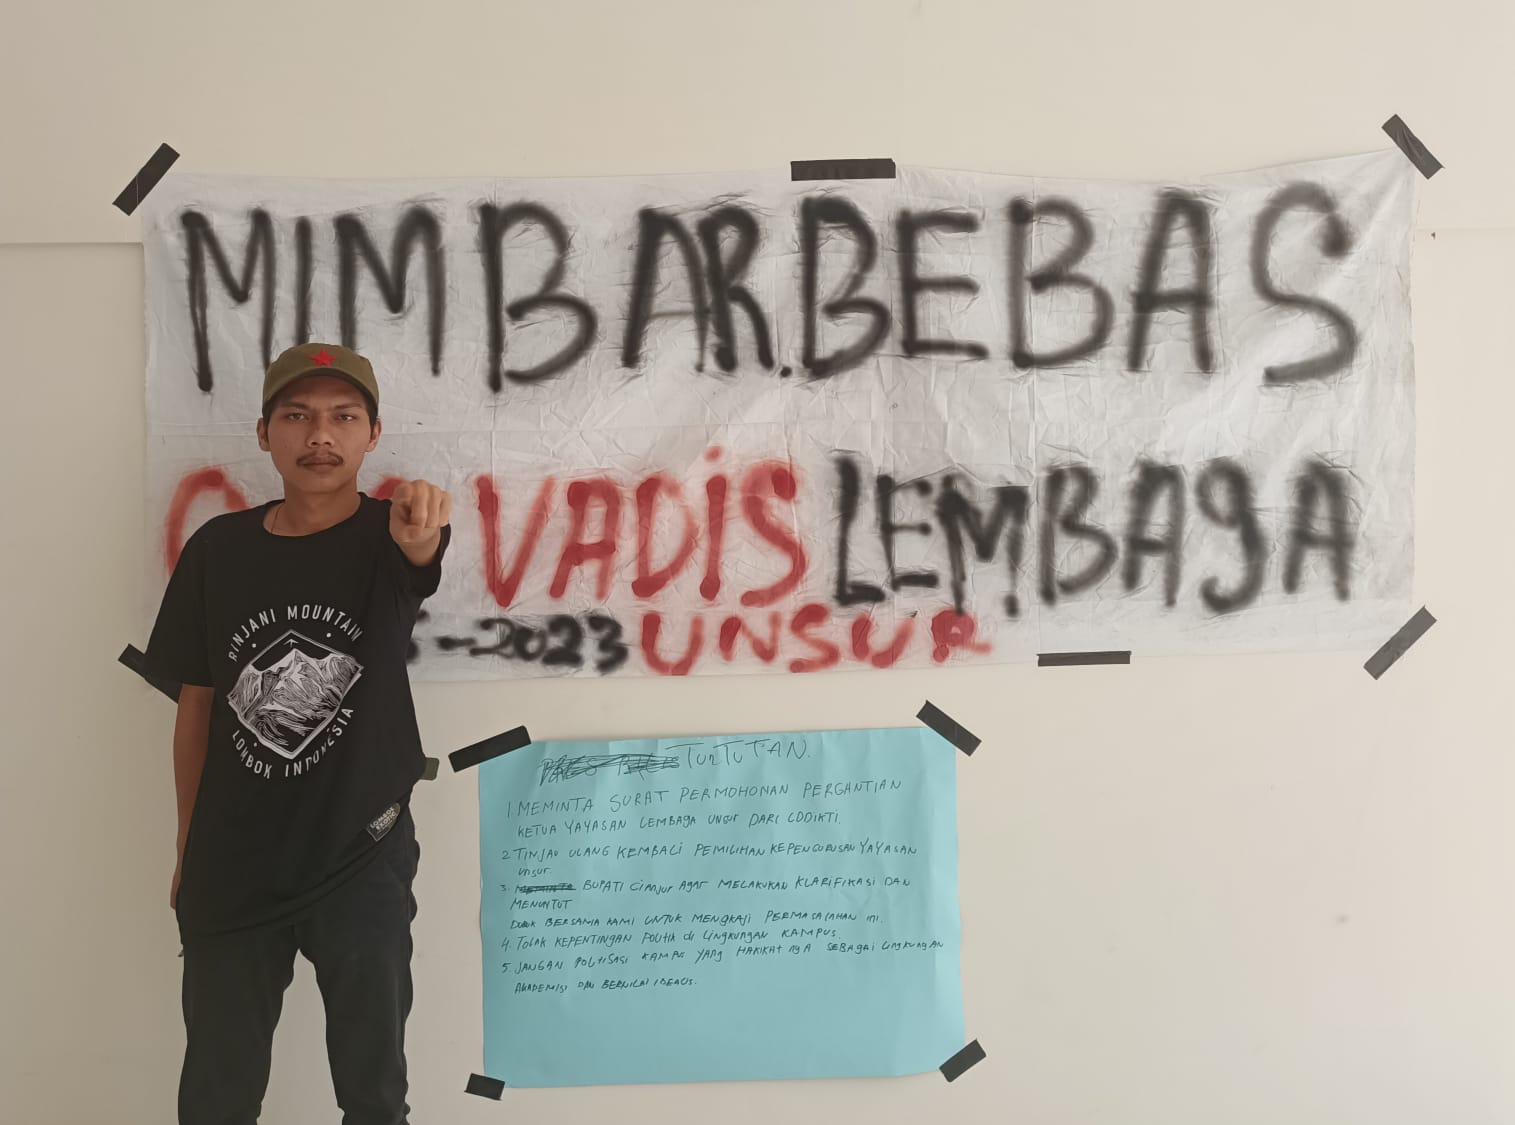 MIMBAR.BEBAS
VADIS LEMBAGA
-2023 UNSUR
RINJANI MOUNTAIN
LOMBOK INDONESIA
LOMBOK
EXOTIC
TUNTUTAN.
1. MEMINTA SURAT PERMOHONAN PERGANTIAN
KETUA YAYASAN LEMBAGA UNSUR DARI LDDIKTI.
2. TINJAU ULANG KEMBALI PEMILIHAN KEPENGURUSAN YAYASAN
UNSUR.
3. BUPATI CIANJUR AGAR MELAKUKAN KLARIFIKASI DAN
MENUNTUT
DUDUK BERSAMA KAMI UNTUK MENGKAJI PERMASALAHAN INI.
4. TOLAK KEPENTINGAN POLITIK di LINGKUNGAN KAMPUS.
5. JANGAN POLITISASI KAMPUS YANG HAKIKATNYA SEBAGAI LINGKUNGAN
AKADEMISI DAN BERNILAI IDEALIS.